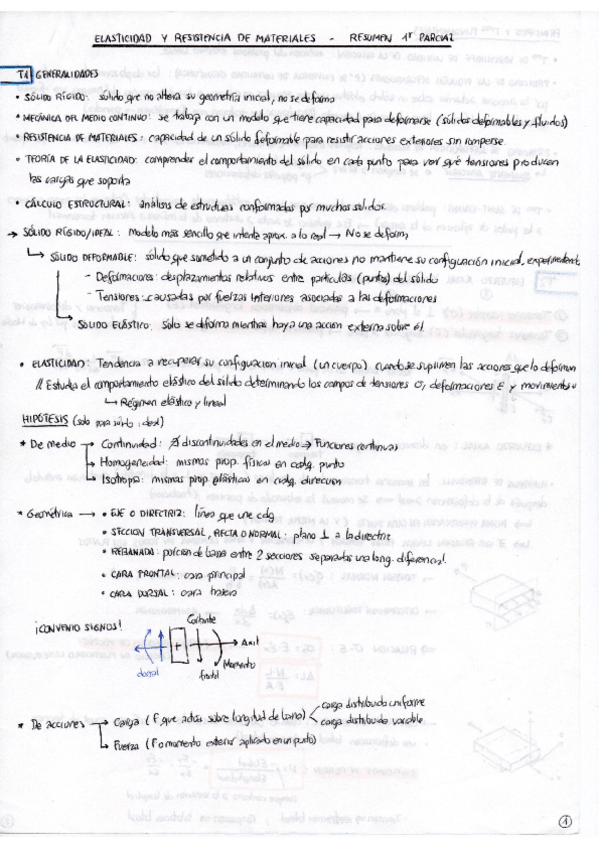 ELASTICIDAD Y RESISTENCIA DE MATERIALES - RESUMEN 1er PARCIAL
T1 GENERALIDADES
• SÓLIDO RÍGIDO: sólido que no altera su geometría inicial, no se deforma
• MECÁNICA DEL MEDIO CONTINUO: se trabaja con un modelo que tiene capacidad para deformarse (sólidos deformables y fluidos)
• RESISTENCIA DE MATERIALES: capacidad de un sólido deformable para resistir acciones exteriores sin romperse.
• TEORÍA DE LA ELASTICIDAD: comprender el comportamiento del sólido en cada punto para ver qué tensiones producen
las cargas que soporta
• CÁLCULO ESTRUCTURAL: análisis de estructuras conformadas por muchos sólidos.
→ SÓLIDO RÍGIDO/IDEAL: Modelo más sencillo que intenta aprox. a lo real → No se deforma
↳ SÓLIDO DEFORMABLE: sólido que sometido a un conjunto de acciones no mantiene su configuración inicial, experimentando
- Deformaciones: desplazamientos relativos entre partículas (puntos) del sólido
- Tensiones: causadas por fuerzas interiores asociadas a las deformaciones
↳ SÓLIDO ELÁSTICO: Sólo se deforma mientras haya una acción externa sobre él
• ELASTICIDAD: Tendencia a recuperar su configuración inicial (un cuerpo) cuando se suprimen las acciones que lo deforman
// Estudia el comportamiento elástico del sólido determinando los campos de tensiones σ, deformaciones ε y movimientos u
↳ Régimen elástico y lineal
HIPÓTESIS (solo para sólido ideal)
* De medio → Continuidad: ∄ discontinuidades en el medio → Funciones continuas
→ Homogeneidad: mismas prop. físicas en cada punto
→ Isotropía: mismas prop. elásticas en cada dirección
* Geométrica → • EJE O DIRECTRIZ: línea que une cdg
• SECCIÓN TRANSVERSAL, RECTA O NORMAL: plano ⊥ a la directriz
• REBANADA: porción de barra entre 2 secciones separadas una long. diferencial.
• CARA FRONTAL: cara principal
• CARA DORSAL: cara trasera
¡CONVENIO SIGNOS!
Cortante
+
Axil
Momento
dorsal
frontal
* De acciones → Carga (F que actúa sobre longitud de barra) < carga distribuida uniforme
carga distribuida variable
→ Fuerza (F o momento exterior aplicado en un punto)
1